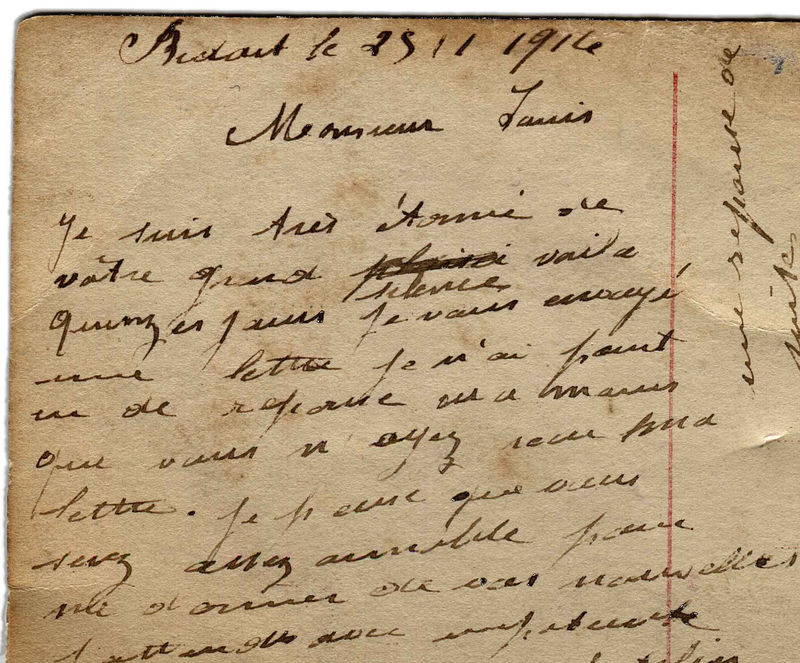 Bidart le 25 11 1914
Monsieur Janis
Je suis très étonné de
vôtre grand silence voila
quinzes jours je vous envoyé
une lettre je n'ai point
eu de reponse
que vous n'ayez reçu ma
lettre. Je pense que vous
serez assez aimable pour
me donner de vos nouvelles
J'attends avec impatiente
une reponse de